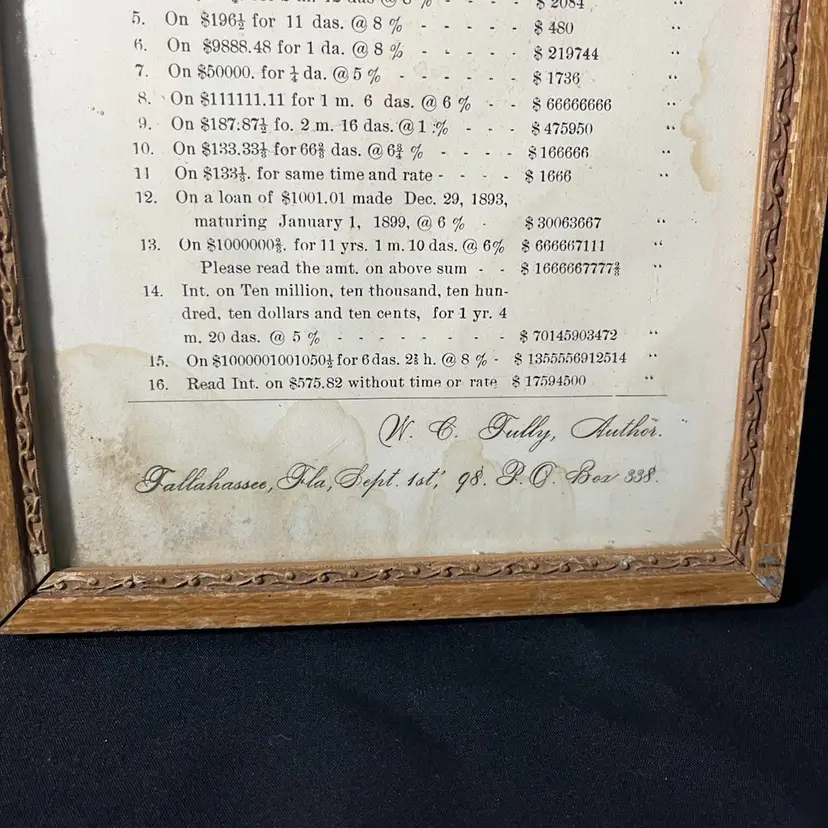 $ 2084
5. On $196½ for 11 das. @ 8 % - - - - - $ 480
6. On $9888.48 for 1 da. @ 8 % - - - - $ 219744
7. On $50000. for ¼ da. @ 5 % - - - - - - $ 1736 "
8. On $111111.11 for 1 m. 6 das. @ 6 % - - $ 66666666 "
9. On $187.87½ fo. 2 m. 16 das. @ 1 % - - - $ 475950 "
10. On $133.33⅓ for 66⅔ das. @ 6¾ % - - - - $ 166666 "
11 On $133⅓. for same time and rate - - - - $ 1666 "
12. On a loan of $1001.01 made Dec. 29, 1893,
maturing January 1, 1899, @ 6 % - $ 30063667 "
13. On $1000000⅔. for 11 yrs. 1 m. 10 das. @ 6% $ 666667111 "
Please read the amt. on above sum - - $ 1666667777⅔ "
14. Int. on Ten million, ten thousand, ten hun-
dred, ten dollars and ten cents, for 1 yr. 4
m. 20 das. @ 5 % - - - - - - - - $ 70145903472 "
15. On $1000001001050½ for 6 das. 2⅔ h. @ 8 % - $ 1355556912514 "
16. Read Int. on $575.82 without time or rate $ 17594500 "
W. C. Tully, Author.
Tallahassee, Fla, Sept. 1st, 98. P. O. Box 338.